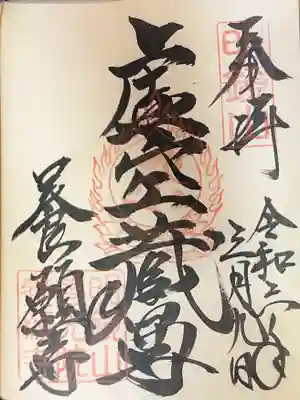 奉拝
令和六年
三月九日
虚空蔵尊
養願寺